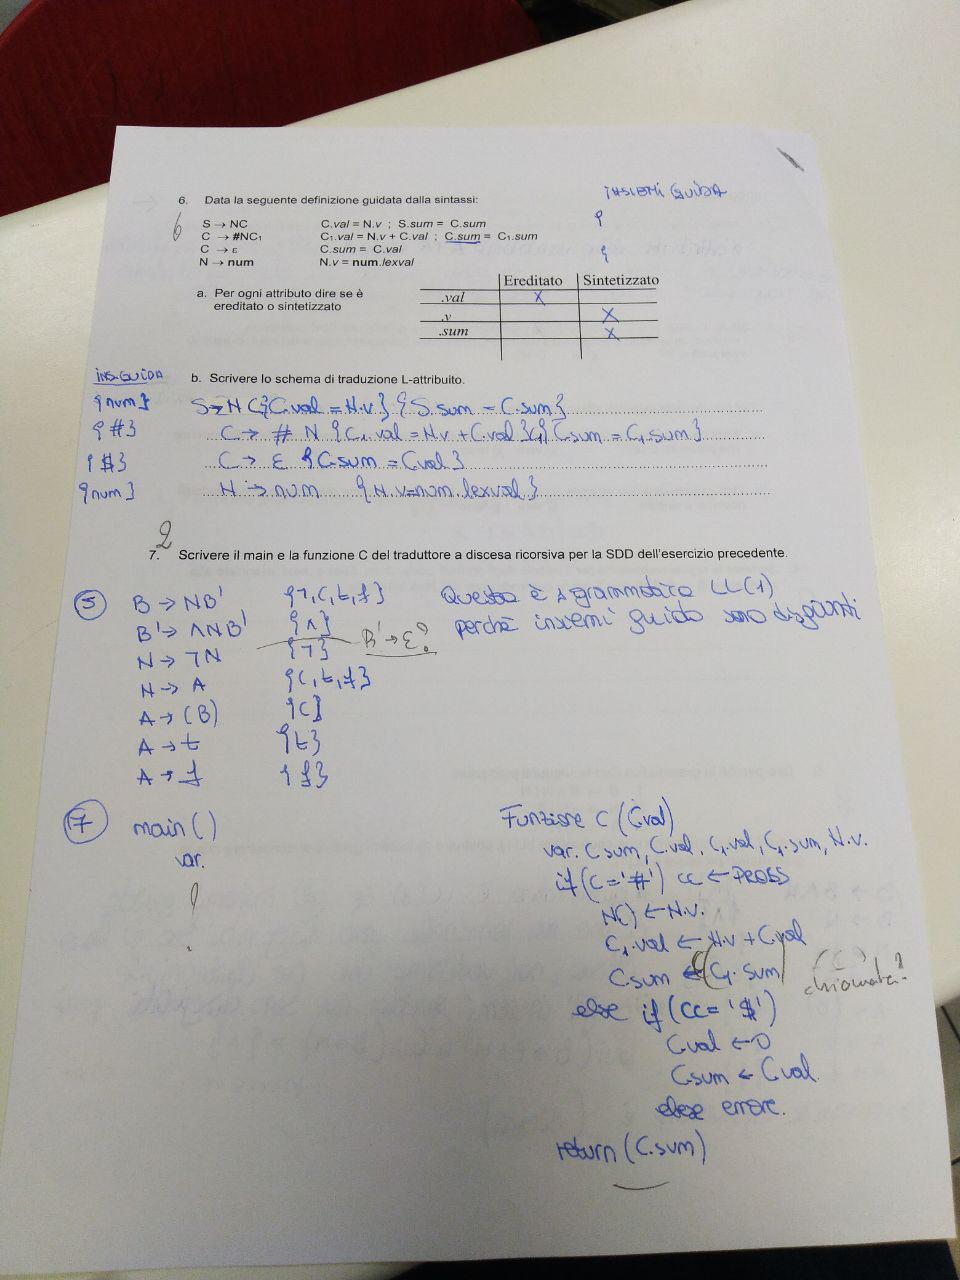 INSIEMI GUIDA
6. Data la seguente definizione guidata dalla sintassi:
6
{
S → NC C.val = N.v ; S.sum = C.sum
C → #NC₁ C₁.val = N.v + C.val ; C.sum = C₁.sum
{
C → ε C.sum = C.val
N → num N.v = num.lexval
Ereditato Sintetizzato
a. Per ogni attributo dire se è
ereditato o sintetizzato
.val X
.v X
.sum X
INS.GUIDA
b. Scrivere lo schema di traduzione L-attribuito.
{num} S→ N C{C.val = N.v} {S.sum = C.sum}
{#} C → # N {C₁.val = N.v + C.val}C₁{C.sum = C₁.sum}
{$} C → ε {C.sum = C.val}
{num} N → num {N.v=num.lexval}
2
7. Scrivere il main e la funzione C del traduttore a discesa ricorsiva per la SDD dell'esercizio precedente.
5
B → NB' {¬,(,t,f}
B' → ∧NB' {∧}
N → ¬N {¬}
N → A {(,t,f}
A → (B) {(}
A → t {t}
A → f {f}
Questa è grammatica LL(1)
perché insiemi guida sono disgiunti
B' → ε?
7 main()
var.
Funzione C (C.val)
var. C.sum, C.val, C₁.val, C₁.sum, N.v.
if(C='#') cc ← PROSS
N() ← N.v.
C₁.val ← N.v + C.val
C.sum ← C₁.sum
chiamata?
else if (cc='$')
C.val ← 0
C.sum ← C.val
else errore.
return (C.sum)